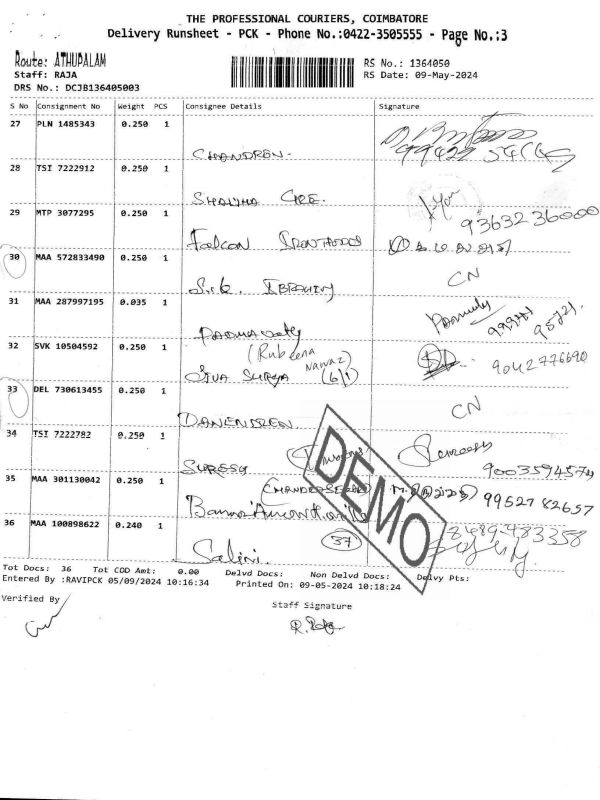 THE PROFESSIONAL COURIERS, COIMBATORE
Delivery Runsheet - PCK - Phone No.:0422-3505555 - Page No.:3
Route: ATHUPALAM
Staff: RAJA
DRS No.: DCJB136405003
RS No.: 1364050
RS Date: 09-May-2024
S No Consignment No Weight PCS Consignee Details Signature
27 PLN 1485343 0.250 1
CHANDREN.
28 TSI 7222912 0.250 1
29 MTP 3077295 0.250 1
9363236000
Falcon
30 MAA 572833490 0.250 1
CN
S.K. IBRAHIM
31 MAA 287997195 0.035 1
32 SVK 10504592 0.250 1
(Rubeena
Nawaz)
9042776690
SIVA SURYA (6/1)
33 DEL 730613455 0.250 1
CN
DANENDREN
34 TSI 7222782 0.250 1
SURESH
9003594574
35 MAA 301130042 0.250 1
9952782657
36 MAA 100898622 0.240 1
37
8689483358
Salini.
DEMO
Tot Docs: 36 Tot COD Amt: 0.00 Delvd Docs: Non Delvd Docs: Delvy Pts:
Entered By :RAVIPCK 05/09/2024 10:16:34 Printed On: 09-05-2024 10:18:24
Verified By
Staff Signature
R. Raja